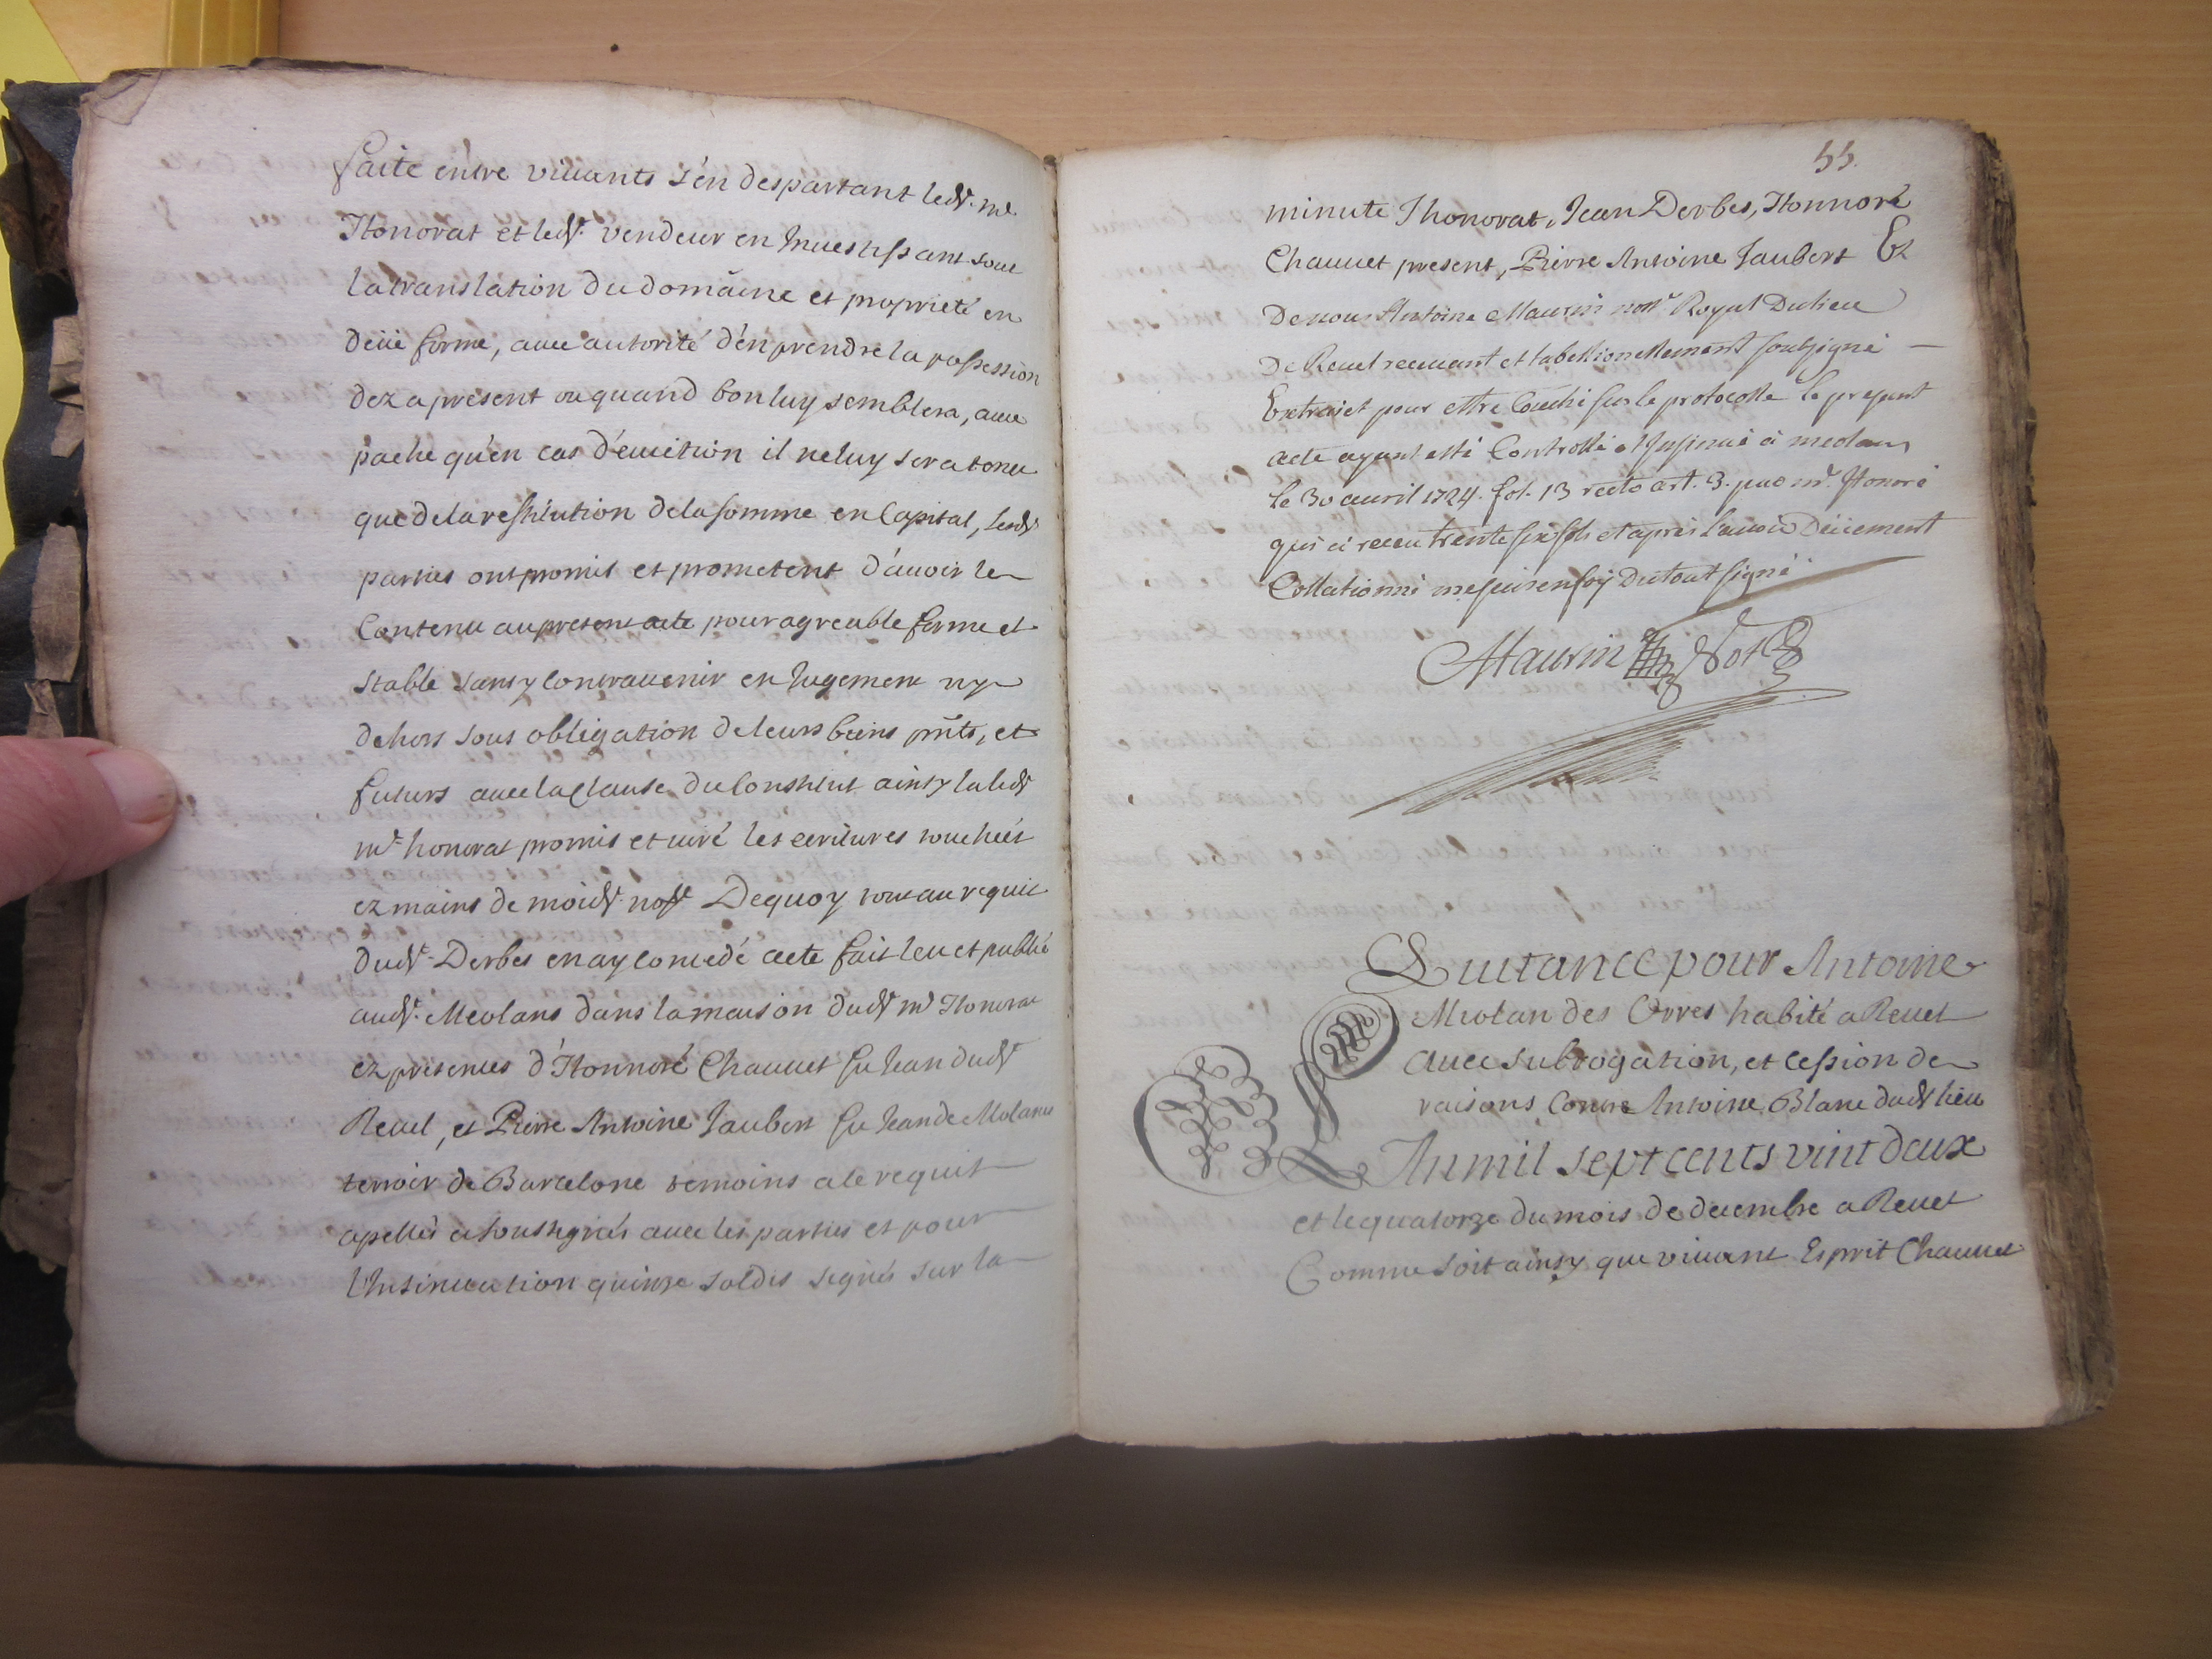 faite entre viuants s'en despartant led.t m.e
Honorat et led.t vendeur en Inuestissant sous
la translation du domaine et proprieté en
deüe forme, auec autorité d'en prendre la possession
dez a present ou quand bon luy semblera, auec
pache qu'en cas d'euiction il ne luy sera tenu
que de la restitution de la somme en Capital, lesd.t
parties ont promis et prometent d'auoir le
Contenu au present acte pour agreable ferme et
stable sans y contrauenir en Jugement ny
dehors sous obligation de leurs biens pñts, et
futurs auec la Clause du Constitut ainsy la led.t
m.e honorat promis et juré les ecritures touchées
ez mains de moid.t not.e Dequoy tout au requis
dud.t Derbes en ay concedé acte fait leu et publié
aud.t Meolans dans la maison dud.t m.e Honorat
ez presences d'Honnoré Chauuet fu Jean dud.t
Reuel, et Pierre Antoine Jaubert fu Jean de Molanes
terroir de Barcelone temoins a le requis
apellés et soussignés auec les parties et pour
l'Insinuation quinze soldis signés sur la
55.
minute J honorat, Jean Derbes, Honnoré
Chauuet present, Pierre Antoine Jaubert Et
De nous Antoine Maurin not.e Royal Du lieu
De Reuel receuant et tabellionellement soubsigné
Extrajet pour estre Couché sur le protocolle le present
acte ayant esté Controllé et Insinué à meolans
le 30 auril 1724. fol. 13 recto art. 3. par m.r Honoré
qui a receu trente six sols et apres l'auoir deüement
Collationné me suis en foy du tout signé
Maurin Not.e
Quitance pour Antoine
Meolan des Orres habité a Reuel
auec subrogation, et cession de
raisons Contre Antoine Blanc dud.t lieu
L'An mil sept cents vint deux
et le quatorze du mois de decembre a Reuel
Comme soit ainsy que viuant Esprit Chauuet